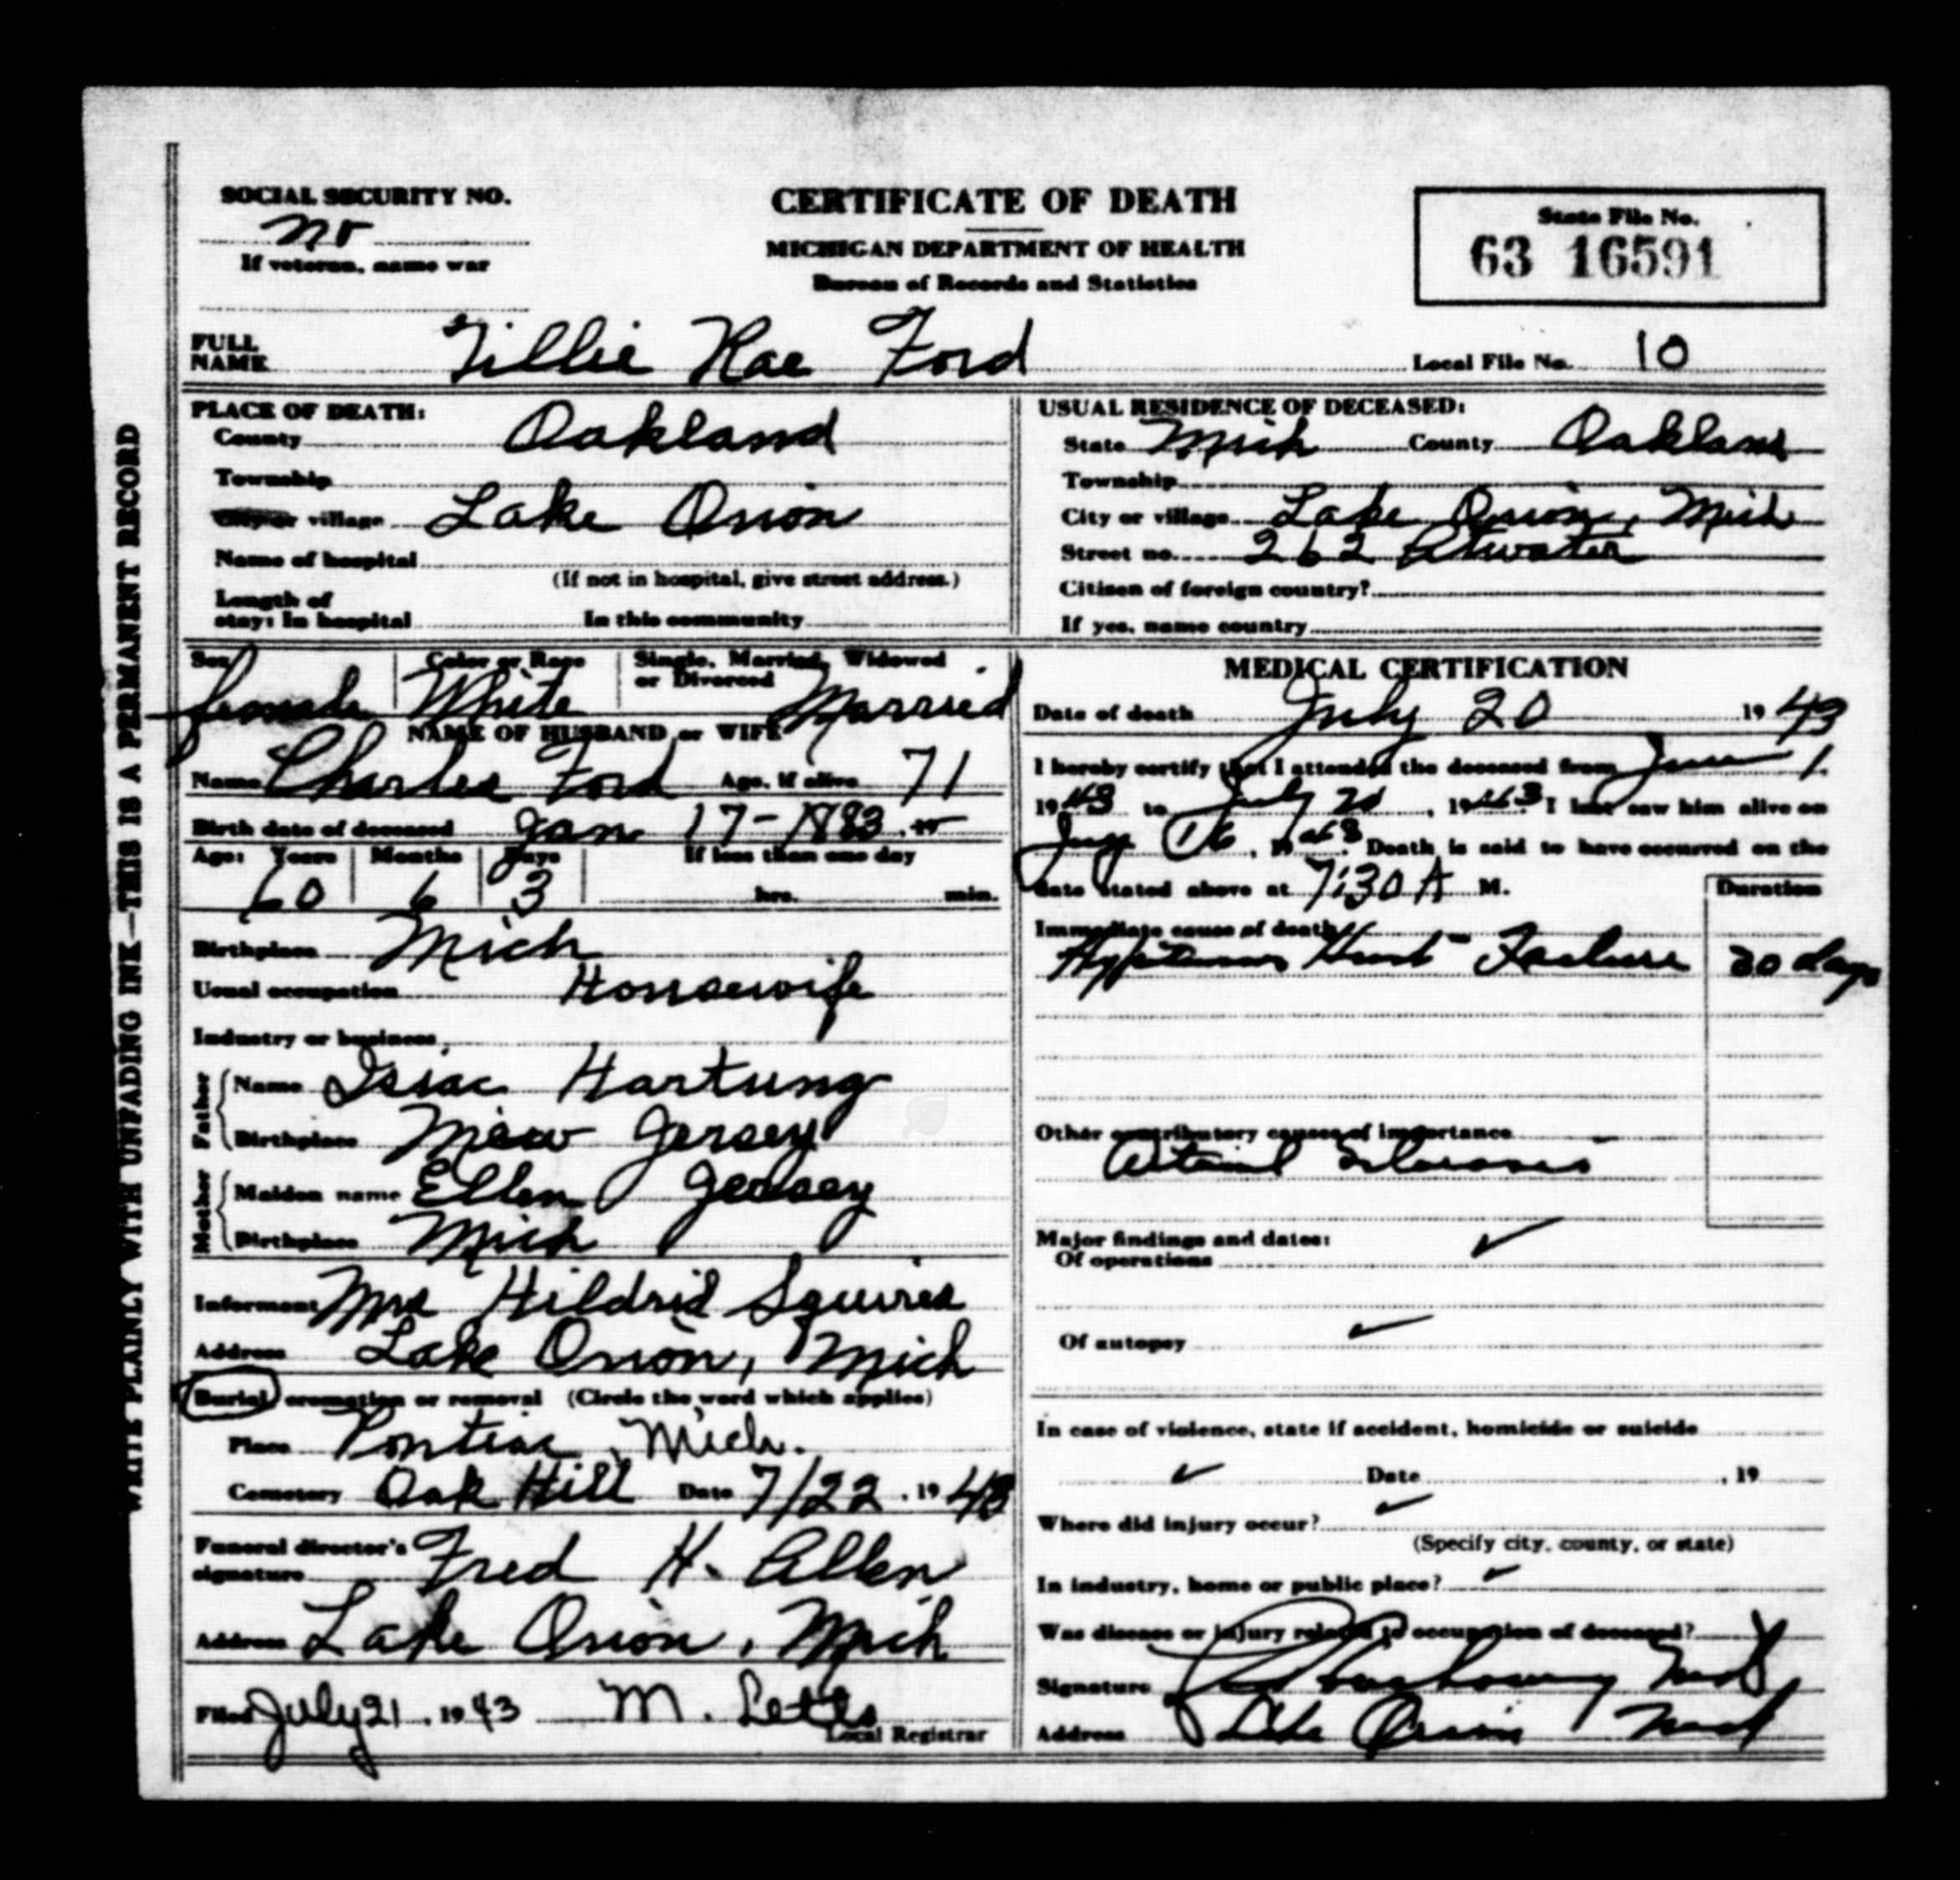 SOCIAL SECURITY NO.
no
If veteran, name war
CERTIFICATE OF DEATH
MICHIGAN DEPARTMENT OF HEALTH
Bureau of Records and Statistics
State File No.
63 16591
FULL NAME Tillie Rae Ford
Local File No. 10
WRITE PLAINLY WITH UNFADING INK—THIS IS A PERMANENT RECORD
PLACE OF DEATH:
County Oakland
Township
City or village Lake Orion
Name of hospital
(If not in hospital, give street address.)
Length of
stay: In hospital In this community
USUAL RESIDENCE OF DECEASED:
State Mich County Oakland
Township
City or village Lake Orion, Mich
Street no. 262 Atwater
Citizen of foreign country?
If yes, name country
Sex Color or Race Single, Married, Widowed or Divorced
female White Married
NAME OF HUSBAND or WIFE
Name Charles Ford Age, if alive 71
Birth date of deceased Jan 17-1883, 19
Age: Years Months Days If less than one day
60 6 3 hrs. min.
Birthplace Mich
Usual occupation Housewife
Industry or business
Father
Name Isiac Hartung
Birthplace New Jersey
Mother
Maiden name Ellen Jersey
Birthplace Mich
Informant Mrs Hildrid Squires
Address Lake Orion, Mich
Burial cremation or removal (Circle the word which applies)
Place Pontiac, Mich.
Cemetery Oak Hill Date 7/22, 1943
Funeral director's
signature Fred H. Allen
Address Lake Orion, Mich
Filed July 21, 1943 M. Letts
Local Registrar
MEDICAL CERTIFICATION
Date of death July 20 1943
I hereby certify that I attended the deceased from June 1.
1943 to July 20, 1943 I last saw him alive on
July 16, 1943 Death is said to have occurred on the
date stated above at 7:30 A M.
Duration
Immediate cause of death
Heart Failure 20 days
Other contributory causes of importance
Major findings and dates:
Of operations
Of autopsy
In case of violence, state if accident, homicide or suicide
Date , 19
Where did injury occur?
(Specify city, county, or state)
In industry, home or public place?
Was disease or injury related to occupation of deceased?
Signature
Address Lake Orion Mich